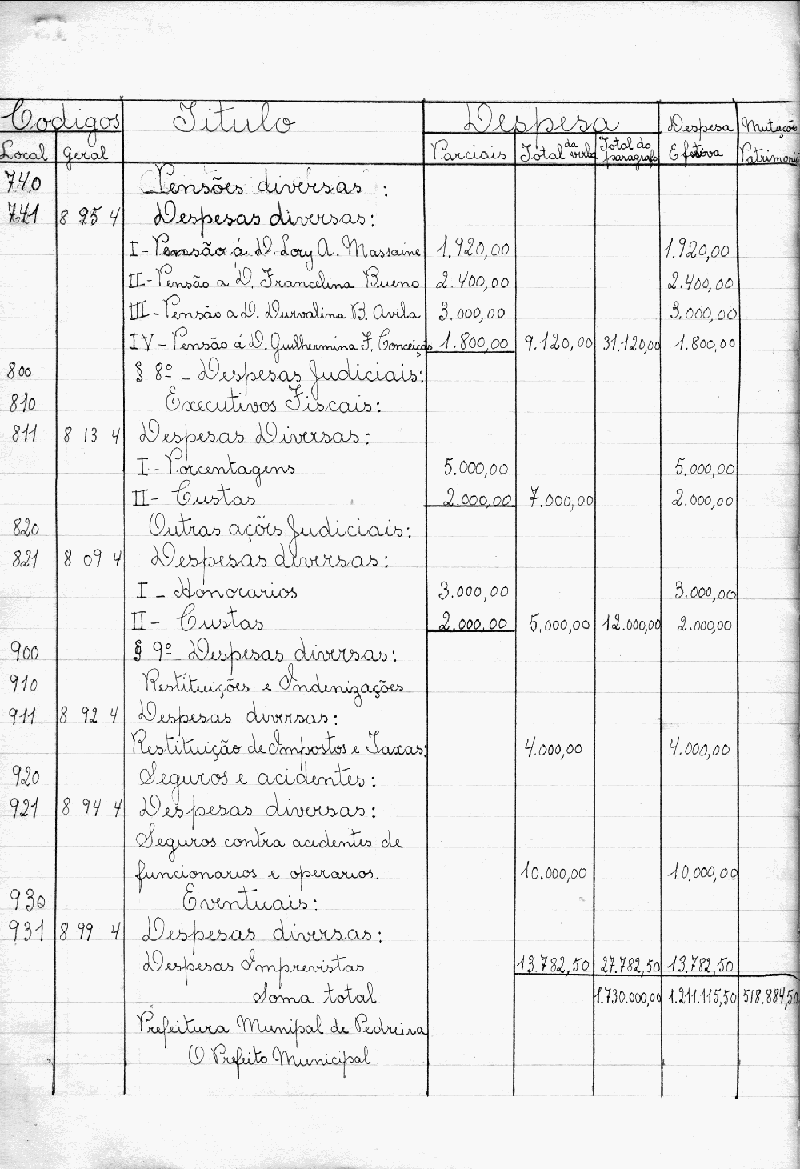 Codigos Titulo Despesa Despesa Mutações
Local Geral Parciais Total da verba Total do paragrafo Efetiva Patrimoni
740 Pensões diversas:
741 8 95 4 Despesas diversas:
I - Pensão á D. Lory A. Massaine 1.920,00 1.920,00
II - Pensão a D. Francelina Bueno 2.400,00 2.400,00
III - Pensão a D. Durvalina B. Avila 3.000,00 3.000,00
IV - Pensão á D. Guilhermina F. Conceição 1.800,00 9.120,00 31.120,00 1.800,00
800 § 8º - Despesas Judiciais:
810 Executivos Fiscais:
811 8 13 4 Despesas Diversas:
I - Porcentagens 5.000,00 5.000,00
II - Custas 2.000,00 7.000,00 2.000,00
820 Outras ações Judiciais:
821 8 09 4 Despesas diversas:
I - Honorarios 3.000,00 3.000,00
II - Custas 2.000,00 5.000,00 12.000,00 2.000,00
900 § 9º - Despesas diversas:
910 Restituições e Indenizações
911 8 92 4 Despesas diversas:
Restituição de Impostos e Taxas; 4.000,00 4.000,00
920 Seguros e acidentes:
921 8 94 4 Despesas diversas:
Seguros contra acidentes de
funcionarios e operarios. 10.000,00 10.000,00
930 Eventuais:
931 8 99 4 Despesas diversas:
Despesas Imprevistas 13.782,50 27.782,50 13.782,50
Soma total 1.730.000,00 1.211.115,50 518.884,50
Prefeitura Munipal de Pedreira
O Prefeito Municipal